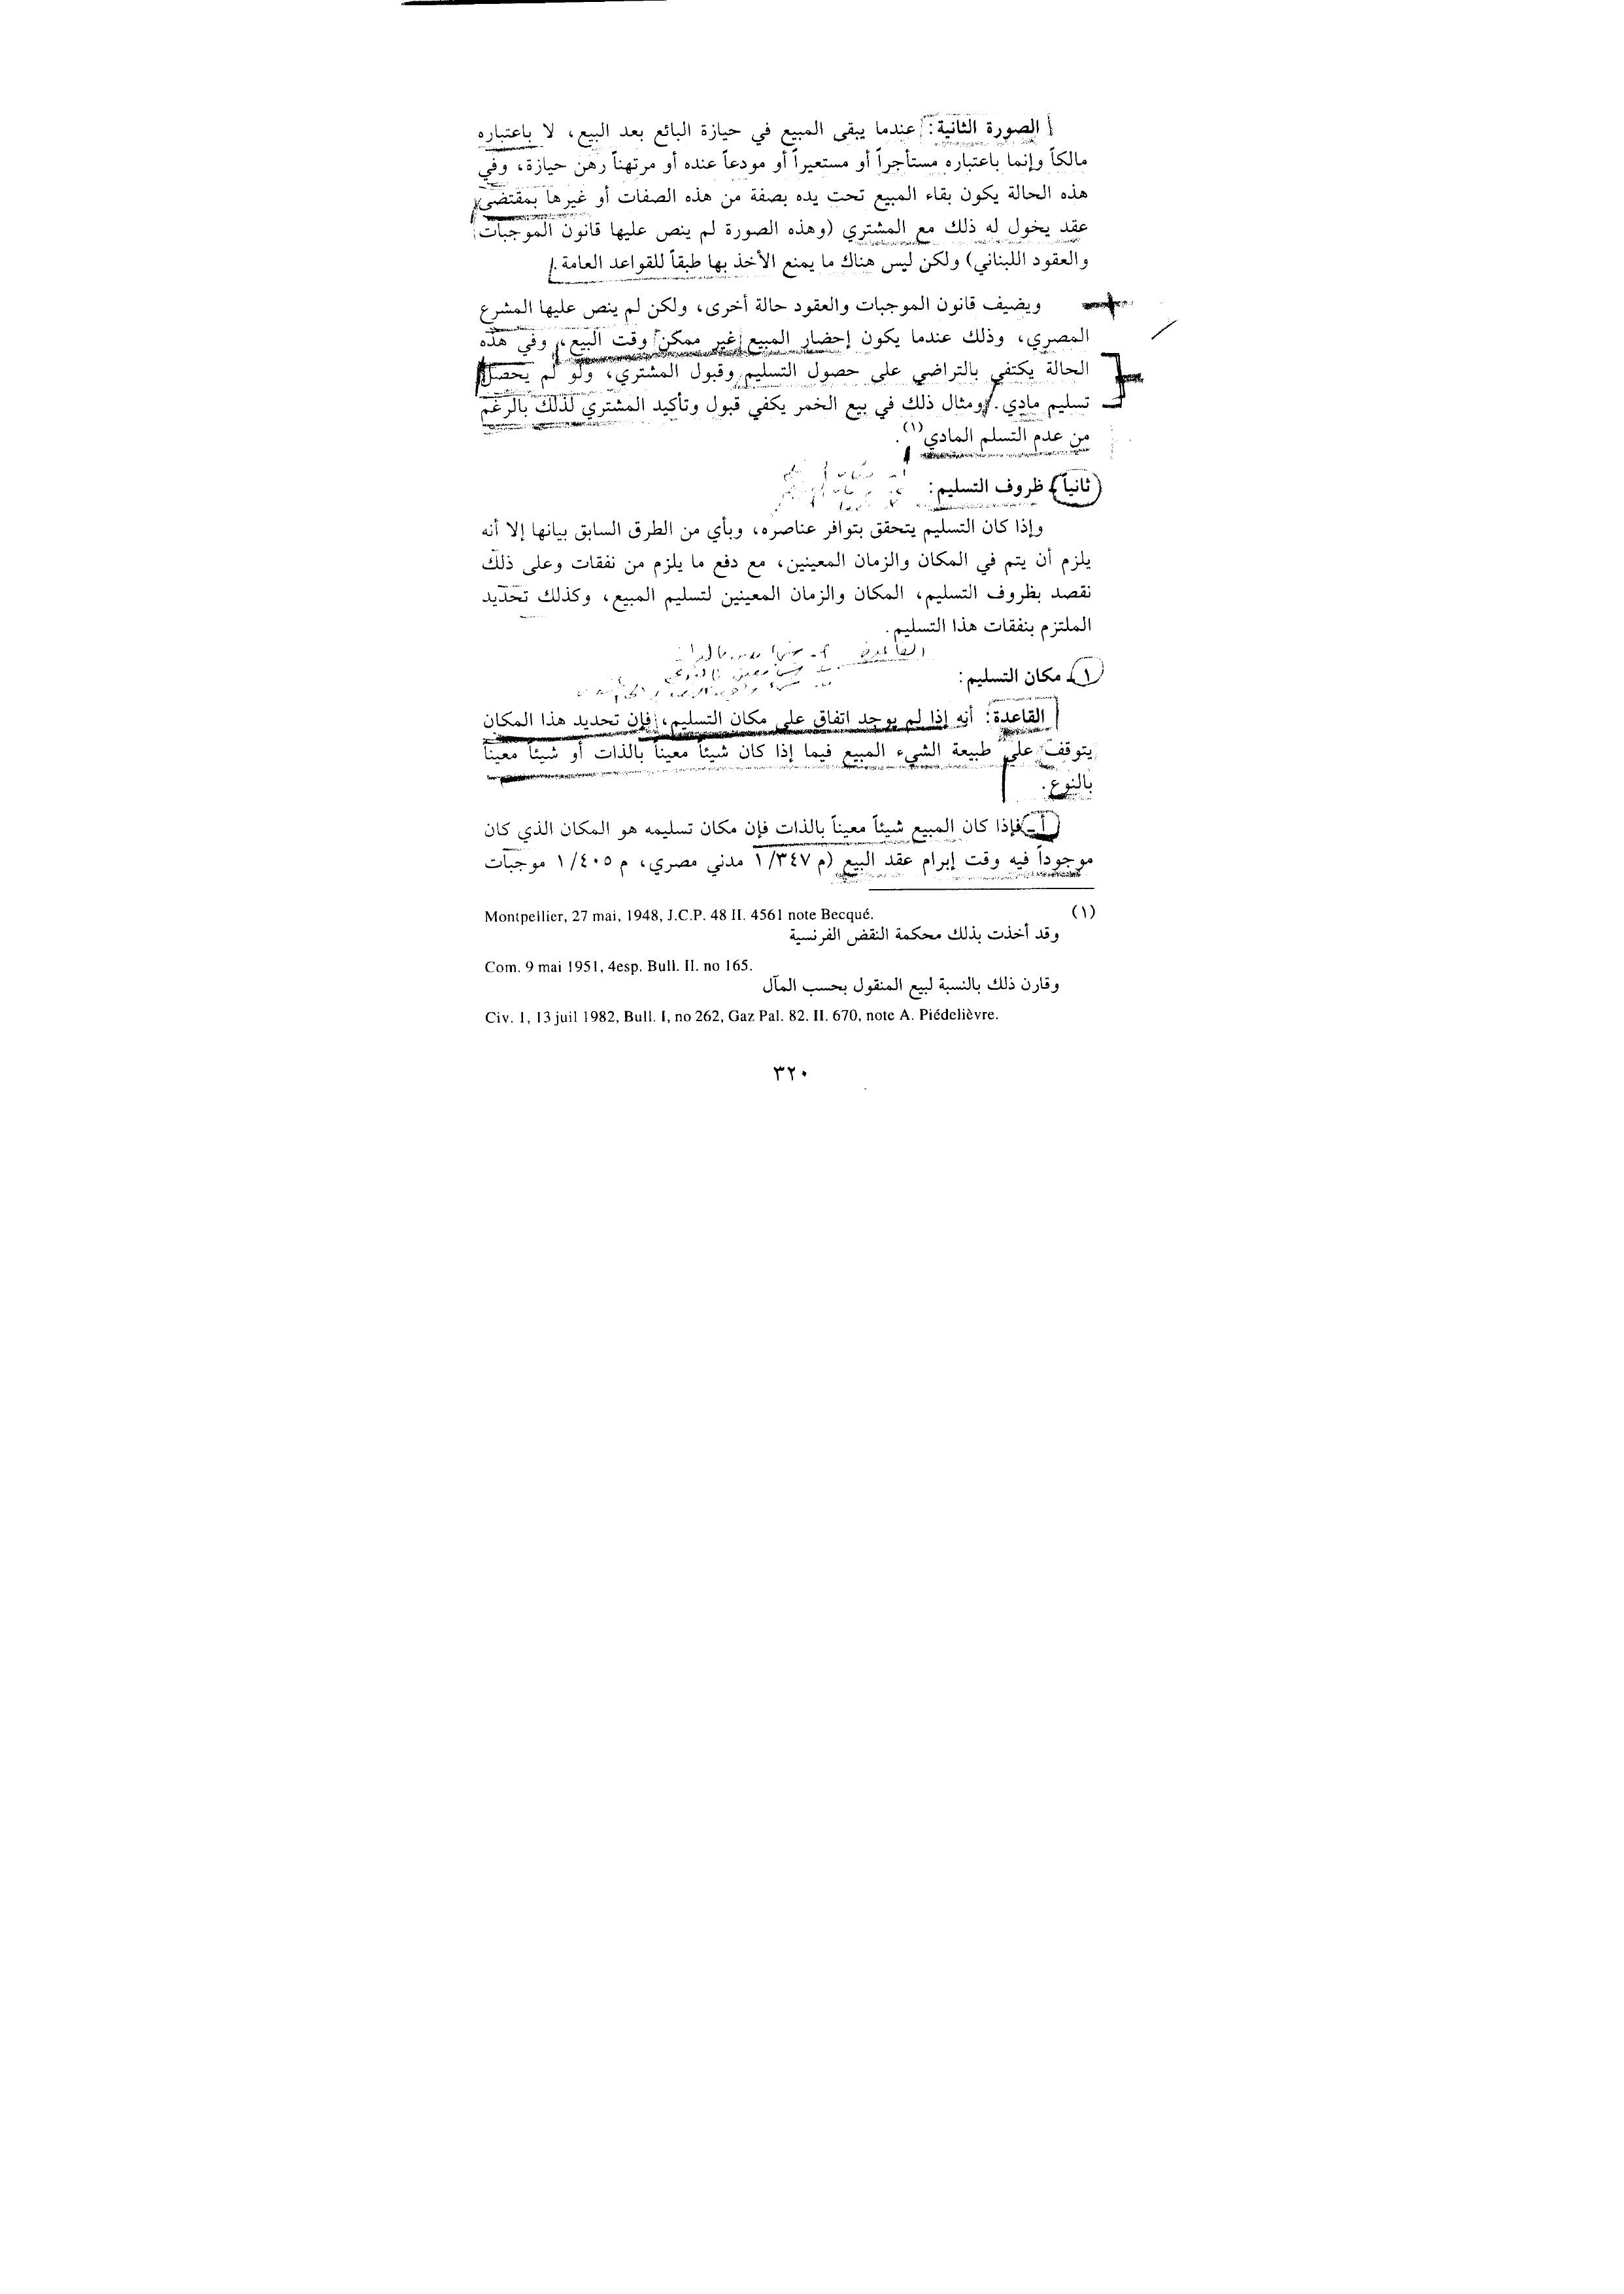 الصورة الثانية: عندما يبقى المبيع في حيازة البائع بعد البيع، لا باعتباره
مالكاً وإنما باعتباره مستأجراً أو مستعيراً أو مودعاً عنده أو مرتهناً رهن حيازة، وفي
هذه الحالة يكون بقاء المبيع تحت يده بصفة من هذه الصفات أو غيرها بمقتضى
عقد يخول له ذلك مع المشتري (وهذه الصورة لم ينص عليها قانون الموجبات
والعقود اللبناني) ولكن ليس هناك ما يمنع الأخذ بها طبقاً للقواعد العامة.
ويضيف قانون الموجبات والعقود حالة أخرى، ولكن لم ينص عليها المشرع
المصري، وذلك عندما يكون إحضار المبيع غير ممكن وقت البيع، وفي هذه
الحالة يكتفي بالتراضي على حصول التسليم وقبول المشتري، ولو لم يحصل
تسليم مادي. ومثال ذلك في بيع الخمر يكفي قبول وتأكيد المشتري لذلك بالرغم
من عدم التسلم المادي(١).
ثانياً ـ ظروف التسليم:
وإذا كان التسليم يتحقق بتوافر عناصره، وبأي من الطرق السابق بيانها إلا أنه
يلزم أن يتم في المكان والزمان المعينين، مع دفع ما يلزم من نفقات وعلى ذلك
نقصد بظروف التسليم، المكان والزمان المعينين لتسليم المبيع، وكذلك تحديد
الملتزم بنفقات هذا التسليم.
القاعدة
١ ـ مكان التسليم:
القاعدة: أنه إذا لم يوجد اتفاق على مكان التسليم، فإن تحديد هذا المكان
يتوقف على طبيعة الشيء المبيع فيما إذا كان شيئاً معيناً بالذات أو شيئاً معيناً
بالنوع.
أ ـ فإذا كان المبيع شيئاً معيناً بالذات فإن مكان تسليمه هو المكان الذي كان
موجوداً فيه وقت إبرام عقد البيع (م ١/٣٤٧ مدني مصري، م ١/٤٠٥ موجبات
(١) Montpellier, 27 mai, 1948, J.C.P. 48 II. 4561 note Becqué.
وقد أخذت بذلك محكمة النقض الفرنسية
Com. 9 mai 1951, 4esp. Bull. II. no 165.
وقارن ذلك بالنسبة لبيع المنقول بحسب المآل
Civ. 1, 13 juil 1982, Bull. I, no 262, Gaz Pal. 82. II. 670, note A. Piédelièvre.
٣٢٠